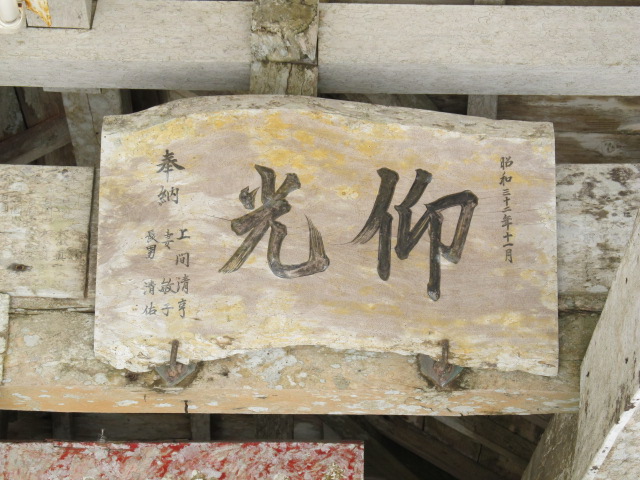 昭和三十二年十一月
仰光
奉納
上間清亨
妻敏子
長男清佑